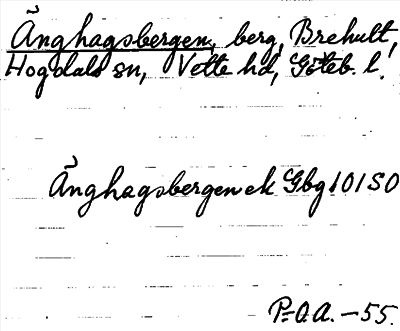 Änghagsbergen, berg, Brehult,
Hogdals sn, Vette hd, Göteb. l.
Änghagsbergen ek Gbg 10150
P-O.A. -55.